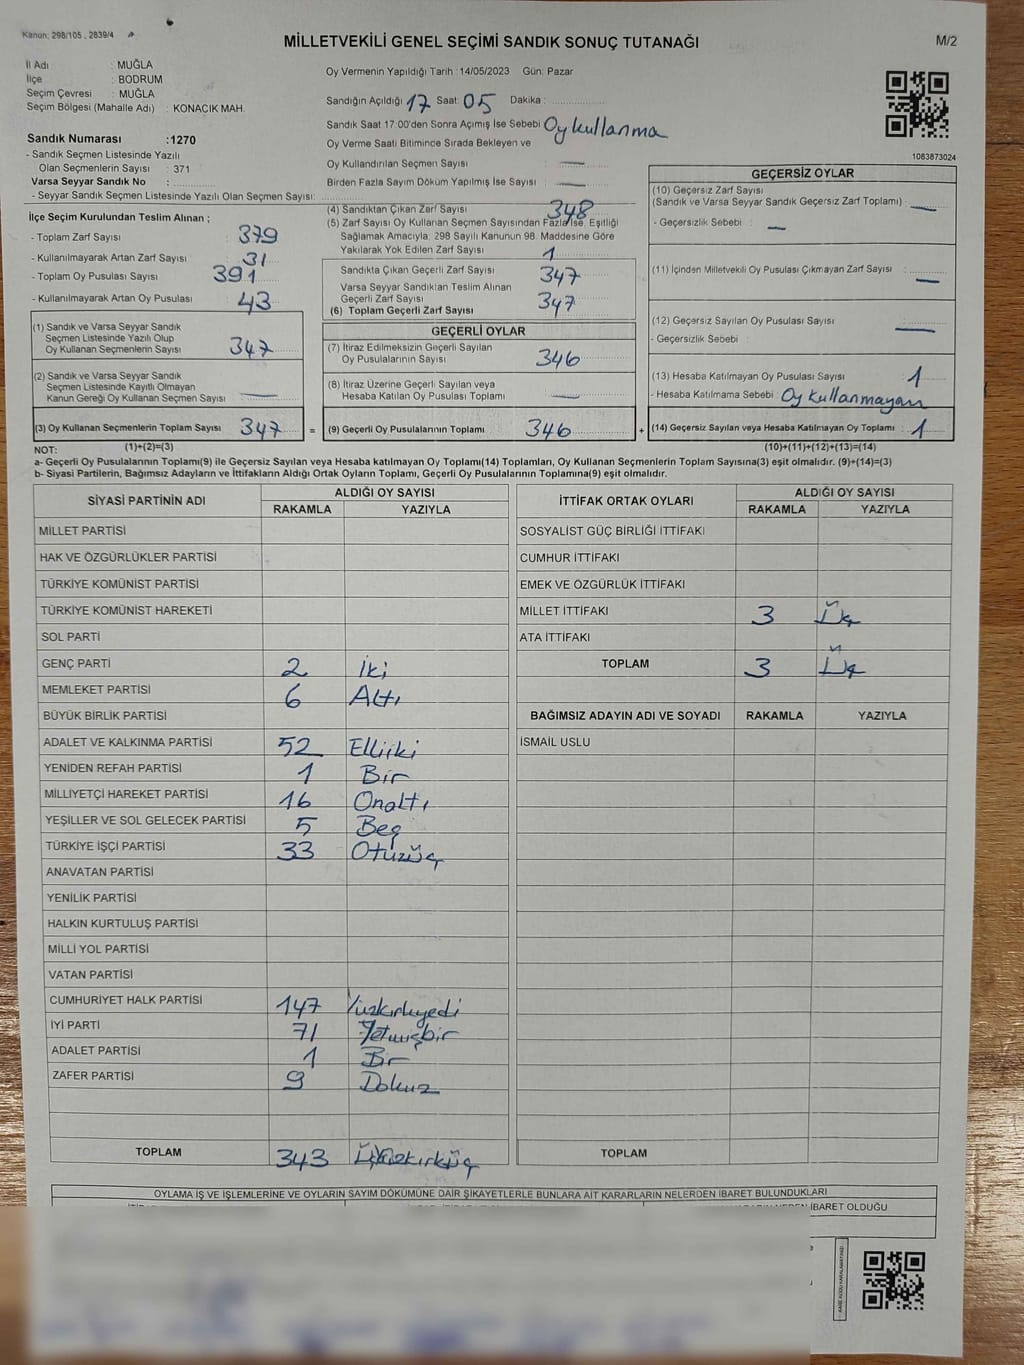 Kanun: 298/105 , 2839/4
MİLLETVEKİLİ GENEL SEÇİMİ SANDIK SONUÇ TUTANAĞI
M/2
İl Adı : MUĞLA
İlçe : BODRUM
Seçim Çevresi : MUĞLA
Seçim Bölgesi (Mahalle Adı) : KONACIK MAH.
Sandık Numarası :1270
- Sandık Seçmen Listesinde Yazılı
Olan Seçmenlerin Sayısı : 371
Varsa Seyyar Sandık No :
- Seyyar Sandık Seçmen Listesinde Yazılı Olan Seçmen Sayısı:
Oy Vermenin Yapıldığı Tarih :14/05/2023 Gün: Pazar
Sandığın Açıldığı 17 Saat: 05 Dakika :
Sandık Saat 17:00'den Sonra Açımış İse Sebebi Oy kullanma
Oy Verme Saati Bitiminde Sırada Bekleyen ve
Oy Kullandırılan Seçmen Sayısı —
Birden Fazla Sayım Döküm Yapılmış İse Sayısı —
1083873024
İlçe Seçim Kurulundan Teslim Alınan ;
- Toplam Zarf Sayısı : 379
- Kullanılmayarak Artan Zarf Sayısı : 31
- Toplam Oy Pusulası Sayısı 391
- Kullanılmayarak Artan Oy Pusulası : 43
(1) Sandık ve Varsa Seyyar Sandık
Seçmen Listesinde Yazılı Olup
Oy Kullanan Seçmenlerin Sayısı : 347
(2) Sandık ve Varsa Seyyar Sandık
Seçmen Listesinde Kayıtlı Olmayan
Kanun Gereği Oy Kullanan Seçmen Sayısı : —
(3) Oy Kullanan Seçmenlerin Toplam Sayısı : 347
(4) Sandıktan Çıkan Zarf Sayısı 348
(5) Zarf Sayısı Oy Kullanan Seçmen Sayısından Fazla İse, Eşitliği
Sağlamak Amacıyla; 298 Sayılı Kanunun 98. Maddesine Göre
Yakılarak Yok Edilen Zarf Sayısı 1
Sandıkta Çıkan Geçerli Zarf Sayısı 347
Varsa Seyyar Sandıktan Teslim Alınan
Geçerli Zarf Sayısı
(6) Toplam Geçerli Zarf Sayısı 347
GEÇERLİ OYLAR
(7) İtiraz Edilmeksizin Geçerli Sayılan
Oy Pusulalarının Sayısı 346
(8) İtiraz Üzerine Geçerli Sayılan veya
Hesaba Katılan Oy Pusulası Toplamı —
= (9) Geçerli Oy Pusulalarının Toplamı 346
GEÇERSİZ OYLAR
(10) Geçersiz Zarf Sayısı
(Sandık ve Varsa Seyyar Sandık Geçersiz Zarf Toplamı) : —
- Geçersizlik Sebebi : —
(11) İçinden Milletvekili Oy Pusulası Çıkmayan Zarf Sayısı : —
(12) Geçersiz Sayılan Oy Pusulası Sayısı : —
- Geçersizlik Sebebi :
(13) Hesaba Katılmayan Oy Pusulası Sayısı : 1
- Hesaba Katılmama Sebebi : Oy kullanmayan
+ (14) Geçersiz Sayılan veya Hesaba Katılmayan Oy Toplamı : 1
NOT: (1)+(2)=(3) (10)+(11)+(12)+(13)=(14)
a- Geçerli Oy Pusulalarının Toplamı(9) ile Geçersiz Sayılan veya Hesaba katılmayan Oy Toplamı(14) Toplamları, Oy Kullanan Seçmenlerin Toplam Sayısına(3) eşit olmalıdır. (9)+(14)=(3)
b- Siyasi Partilerin, Bağımsız Adayların ve İttifakların Aldığı Ortak Oyların Toplamı, Geçerli Oy Pusulalarının Toplamına(9) eşit olmalıdır.
SİYASİ PARTİNİN ADI ALDIĞI OY SAYISI
RAKAMLA YAZIYLA
MİLLET PARTİSİ
HAK VE ÖZGÜRLÜKLER PARTİSİ
TÜRKİYE KOMÜNİST PARTİSİ
TÜRKİYE KOMÜNİST HAREKETİ
SOL PARTİ
GENÇ PARTİ 2 İki
MEMLEKET PARTİSİ 6 Altı
BÜYÜK BİRLİK PARTİSİ
ADALET VE KALKINMA PARTİSİ 52 Elliiki
YENİDEN REFAH PARTİSİ 1 Bir
MİLLİYETÇİ HAREKET PARTİSİ 16 Onaltı
YEŞİLLER VE SOL GELECEK PARTİSİ 5 Beş
TÜRKİYE İŞÇİ PARTİSİ 33 Otuzüç
ANAVATAN PARTİSİ
YENİLİK PARTİSİ
HALKIN KURTULUŞ PARTİSİ
MİLLİ YOL PARTİSİ
VATAN PARTİSİ
CUMHURİYET HALK PARTİSİ 147 Yüzkırkyedi
İYİ PARTİ 71 Yetmişbir
ADALET PARTİSİ 1 Bir
ZAFER PARTİSİ 9 Dokuz
TOPLAM 343 Üçyüzkırküç
İTTİFAK ORTAK OYLARI ALDIĞI OY SAYISI
RAKAMLA YAZIYLA
SOSYALİST GÜÇ BİRLİĞİ İTTİFAKI
CUMHUR İTTİFAKI
EMEK VE ÖZGÜRLÜK İTTİFAKI
MİLLET İTTİFAKI 3 Üç
ATA İTTİFAKI
TOPLAM 3 Üç
BAĞIMSIZ ADAYIN ADI VE SOYADI RAKAMLA YAZIYLA
İSMAİL USLU
TOPLAM
OYLAMA İŞ VE İŞLEMLERİNE VE OYLARIN SAYIM DÖKÜMÜNE DAİR ŞİKAYETLERLE BUNLARA AİT KARARLARIN NELERDEN İBARET BULUNDUKLARI
İBARET OLDUĞU